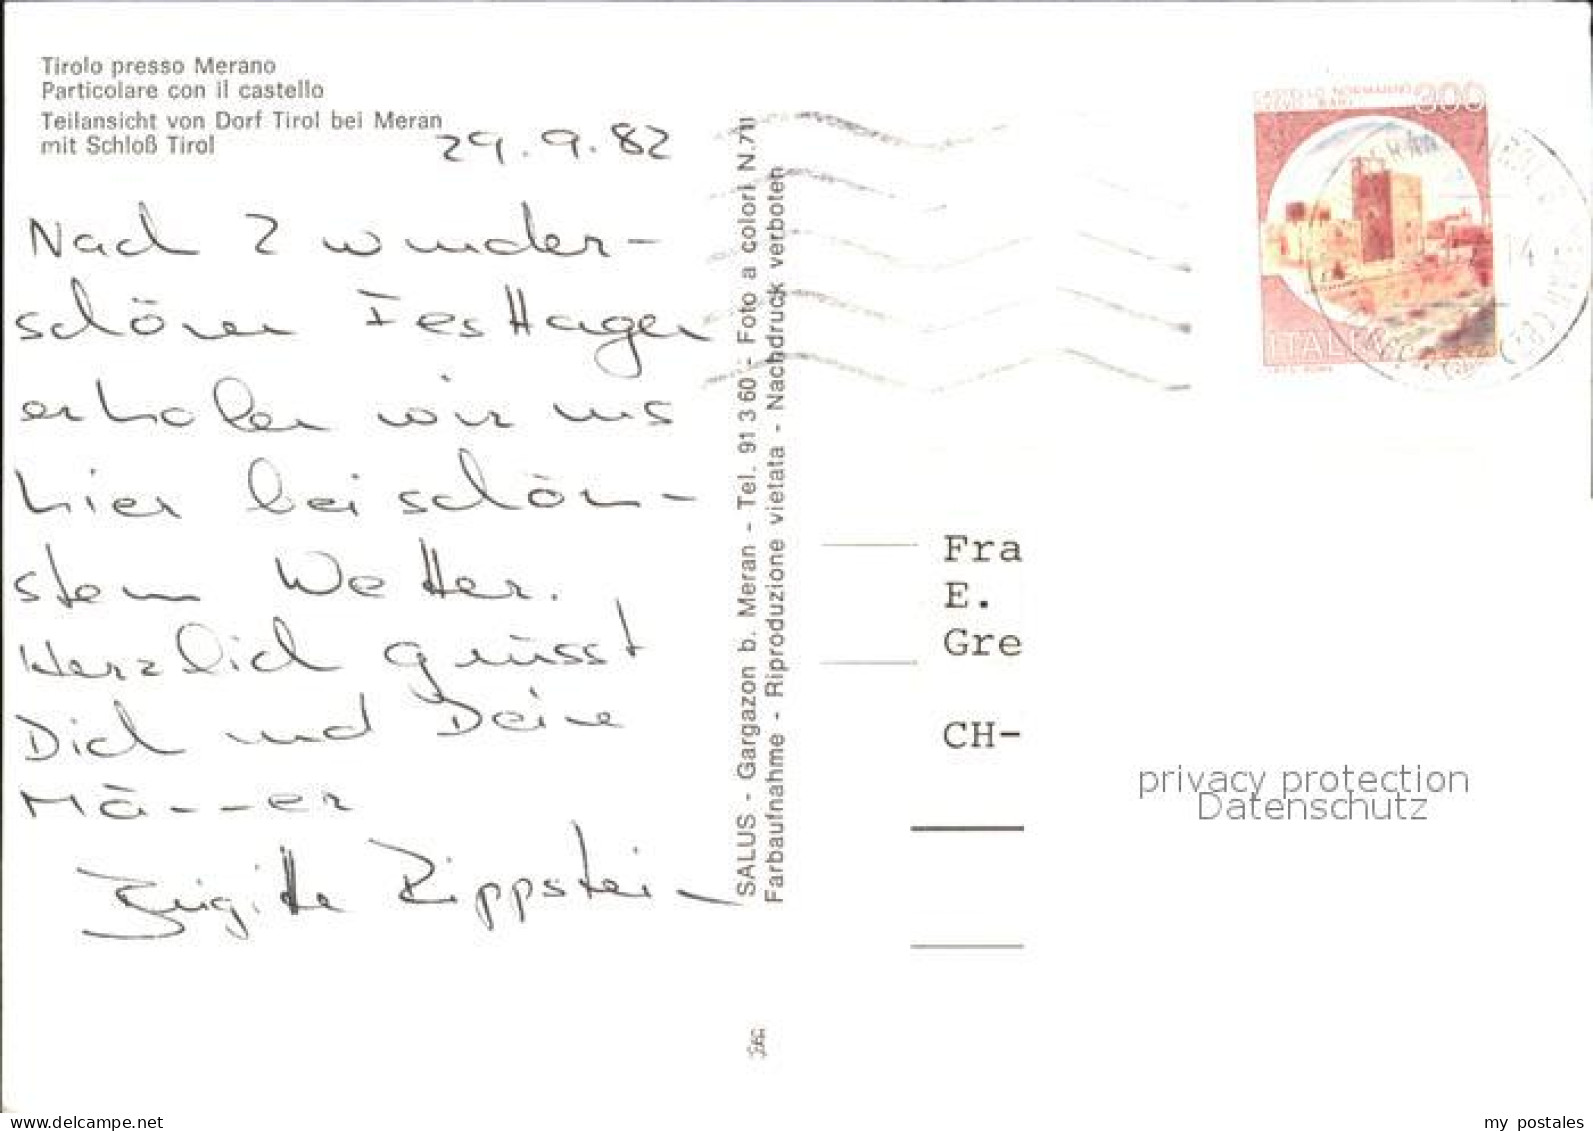 Tirolo presso Merano
Particolare con il castello
Teilansicht von Dorf Tirol bei Meran
mit Schloß Tirol
29.9.82
Nach 2 wunder-
schönen Festtagen
erholen wir uns
hier bei schön-
stem Wetter.
Herzlich grüsst
Dich und Deine
Männer
Brigitte Rippstein
SALUS - Gargazon b. Meran - Tel. 91 3 60 - Foto a colori N.711
Farbaufnahme - Riproduzione vietata - Nachdruck verboten
300
ITALIA
14
Fra
E.
Gre
CH-
privacy protection
Datenschutz
www.delcampe.net
my_postales